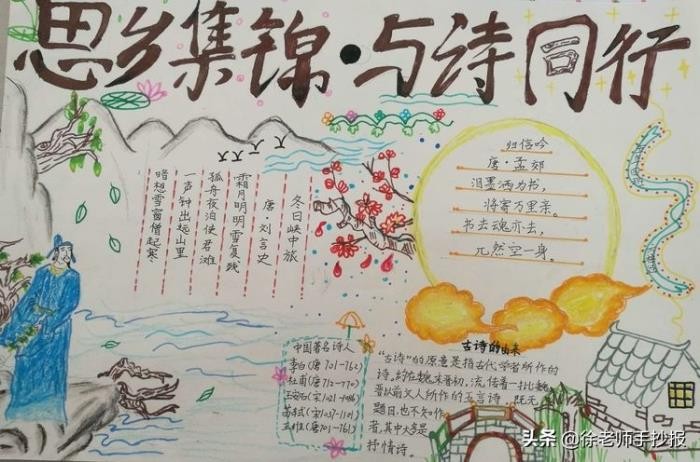 思乡集锦·与诗同行
冬日峡中旅
唐·刘言史
霜月明明雪复残
孤舟夜泊使君滩
一声钟出远山里
暗想雪窗僧起寒
归信吟
唐·孟郊
泪墨洒为书,
将寄万里亲。
书去魂亦去,
兀然空一身。
中国著名诗人
李白(唐701-762)
杜甫(唐712-770)
王安石(宋1021-1086)
苏轼(宋1037-1101)
王维(唐701-761)
古诗的由来
“古诗”的原意是指古代学者所作的
诗,约在魏末晋初,流传着一批魏
晋以前文人所作的五言诗,既无
题目,也不知作
者,其中大多是
抒情诗。
头条 @徐老师手抄报